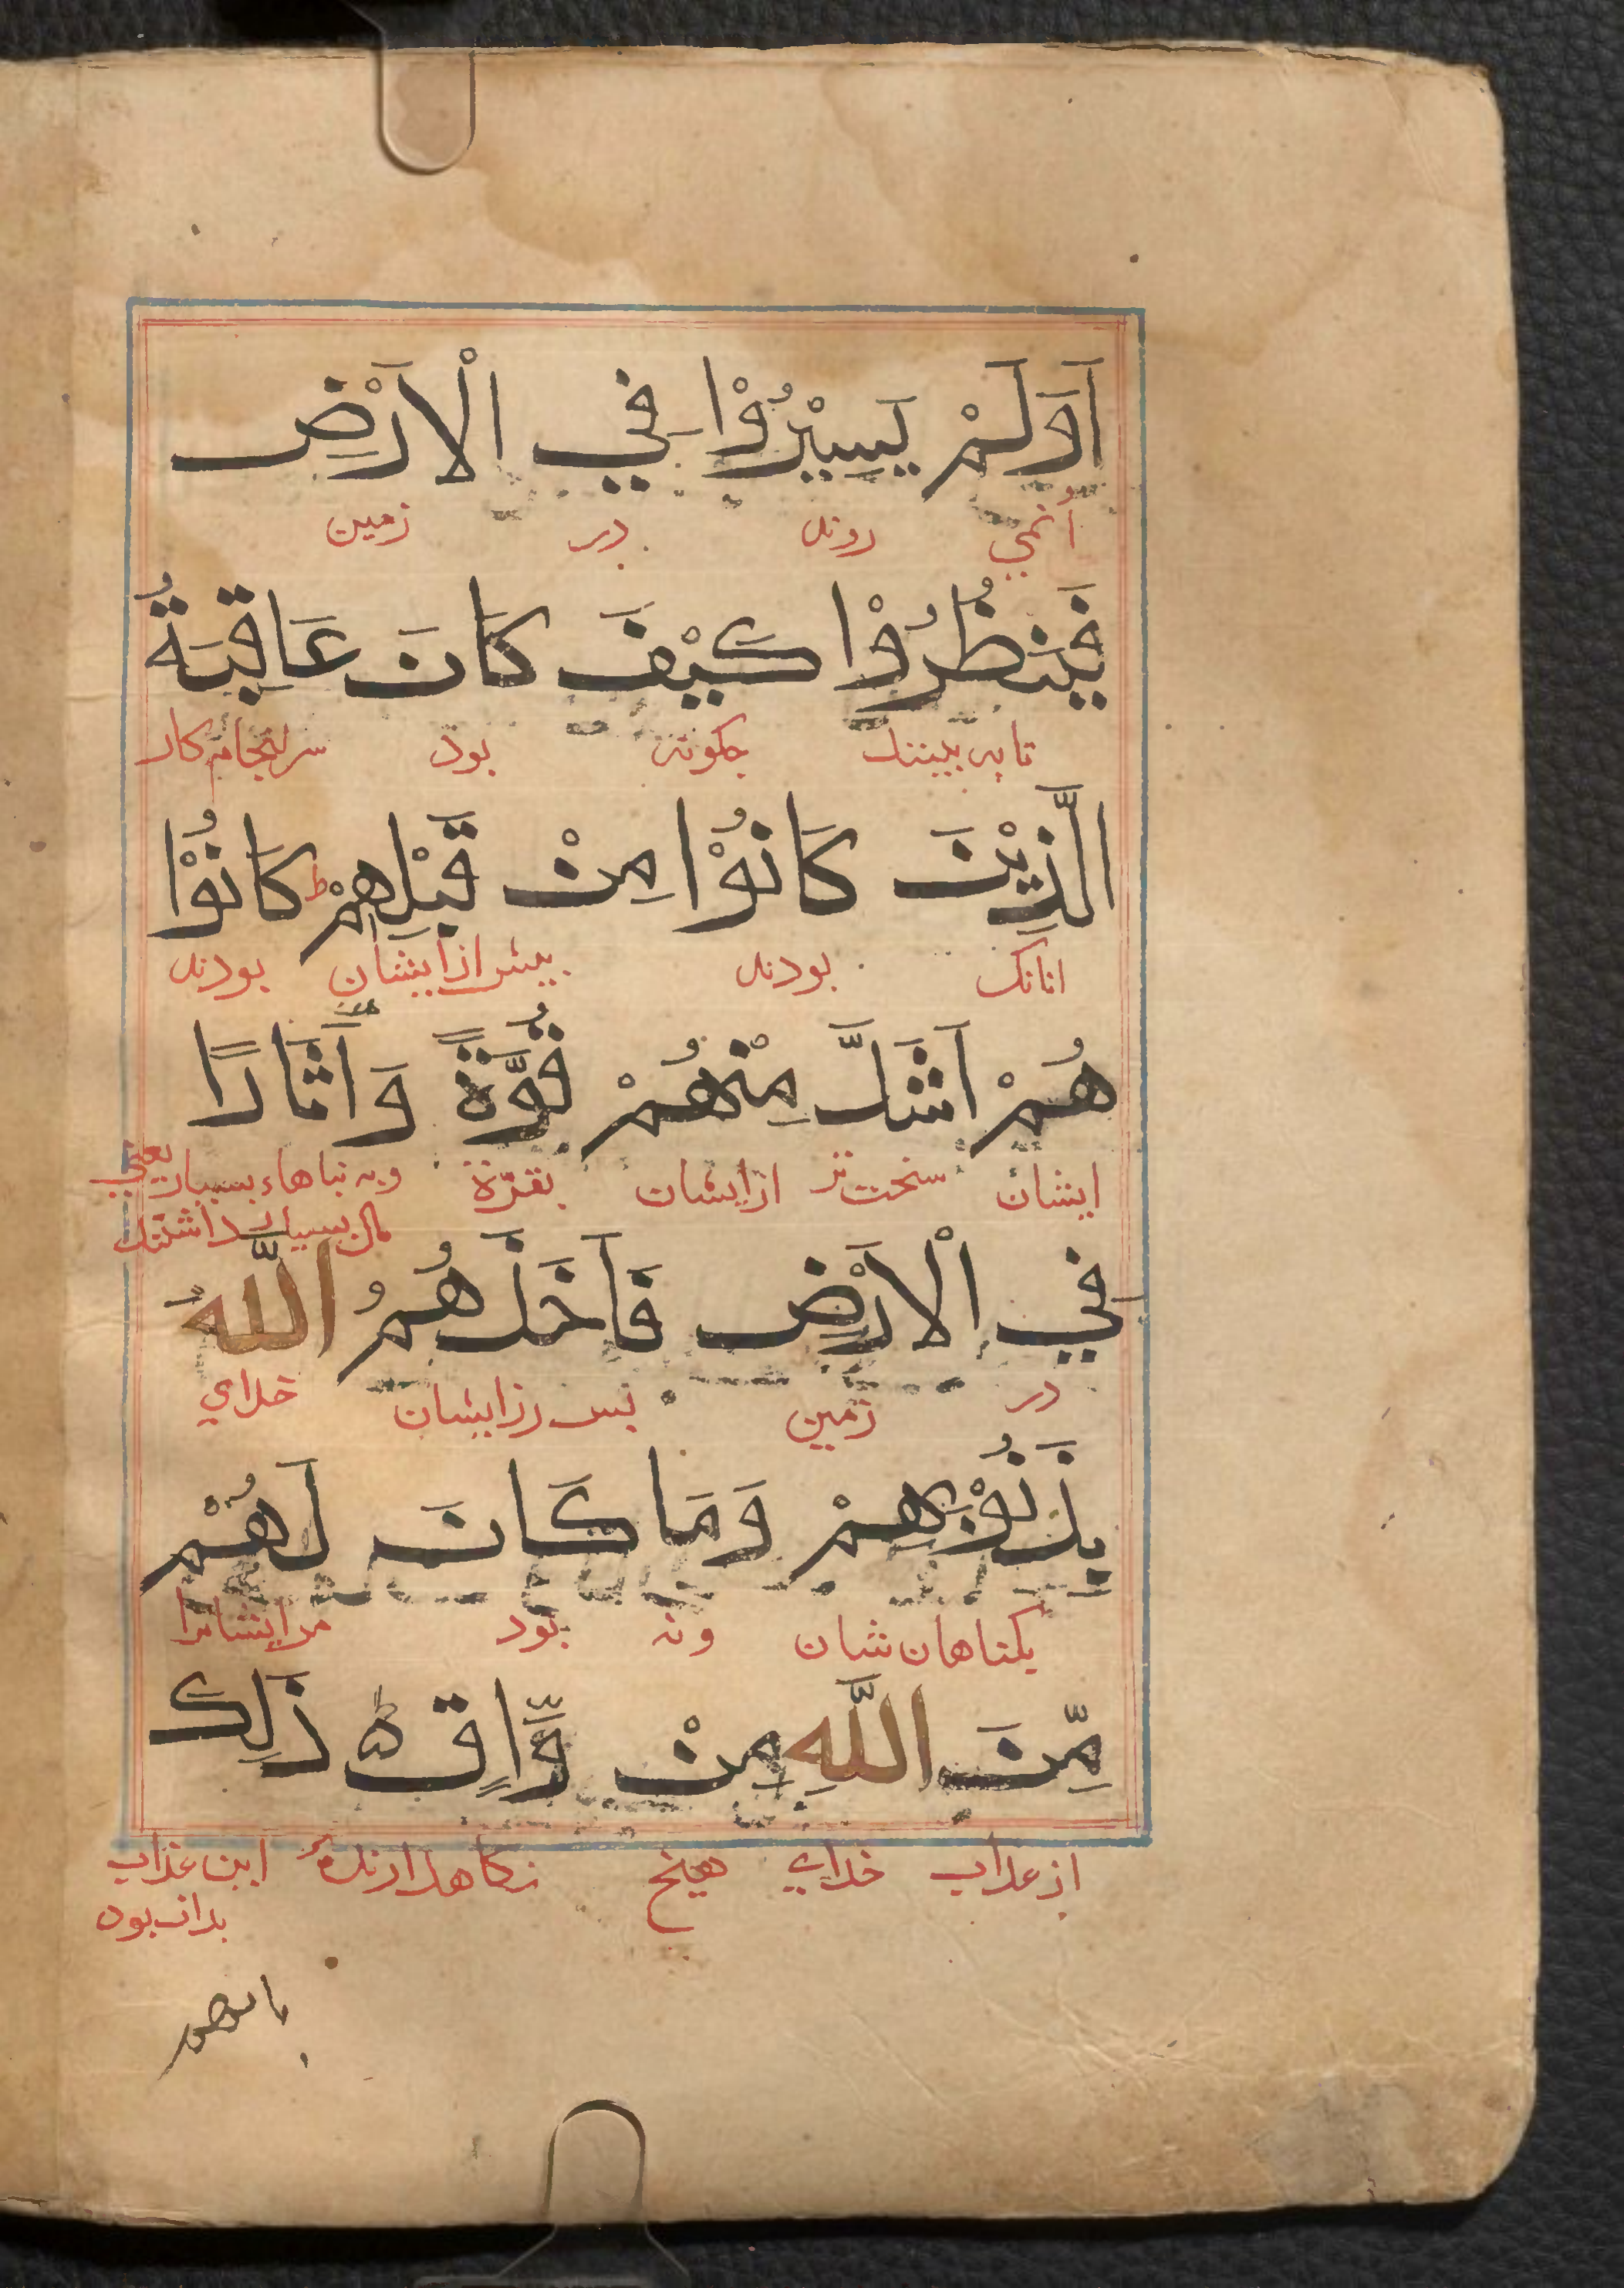 اَوَلَمْ يَسِيْرُوْا فِي الْاَرْضِ
أنمي روند در زمين
فَيَنْظُرُوْا كَيْفَ كَانَ عَاقِبَةُ
تا به بينند چكونه بود سرانجام كار
الَّذِيْنَ كَانُوْا مِنْ قَبْلِهِمْ ط كَانُوْا
انانك بودند پيش از ايشان بودند
هُمْ اَشَدَّ مِنْهُمْ قُوَّةً وَاَثَارًا
ايشان سخت تر از ايشان بقوّة وبه بناهاء بسيار يعني
مال بسيار داشتند
فِي الْاَرْضِ فَاَخَذَهُمُ اللّٰهُ
در زمين پس ايشان خداي
بِذَنُوْبِهِمْ وَمَا كَانَ لَهُمْ
بكناهان شان ونه بود مرايشانرا
مِّنَ اللّٰهِ مِنْ وَّاقٍ ذٰلِكَ
از عذاب خداي هيچ نكاهدارنده اين عذاب
بدان بود
بانهم